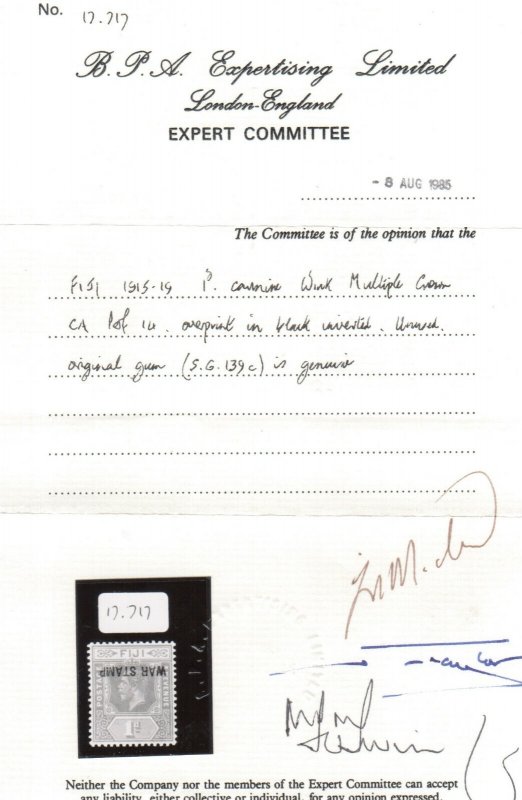 No. 17.717
B.P.A. Expertising Limited
London-England
EXPERT COMMITTEE
- 8 AUG 1985
The Committee is of the opinion that the
FIJI 1915-19 1d. carmine Wmk Multiple Crown
CA Perf 14. overprint in black inverted. Unused.
original gum (S.G. 139c) is genuine
17.717
FIJI
WAR STAMP
POSTAGE
REVENUE
1d
Neither the Company nor the members of the Expert Committee can accept
any liability, either collective or individual, for any opinion expressed.